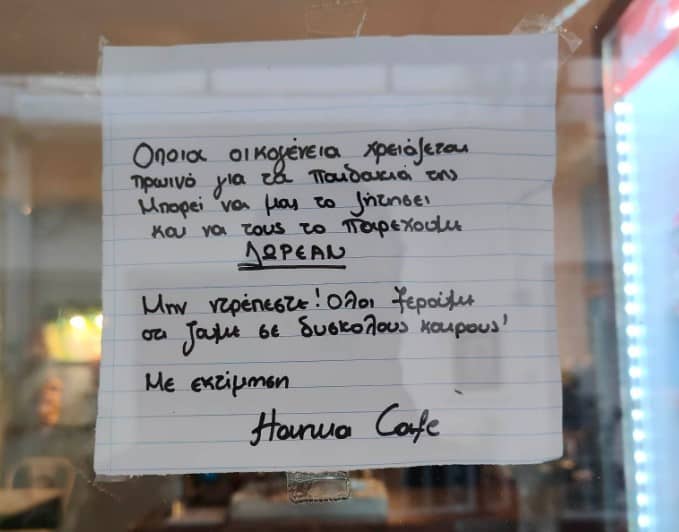 Οποια οικογένεια χρειάζεται
πρωινό για τα παιδακιά της
Μπορεί να μας το ζήτησει
και να τους το παρεχουμε
ΔΩΡΕΑΝ
Μην ντρέπεστε! Ολοι ξερουμε
οτι ζαμε σε δυσκολους καιρους!
Με εκτίμηση
Cafe